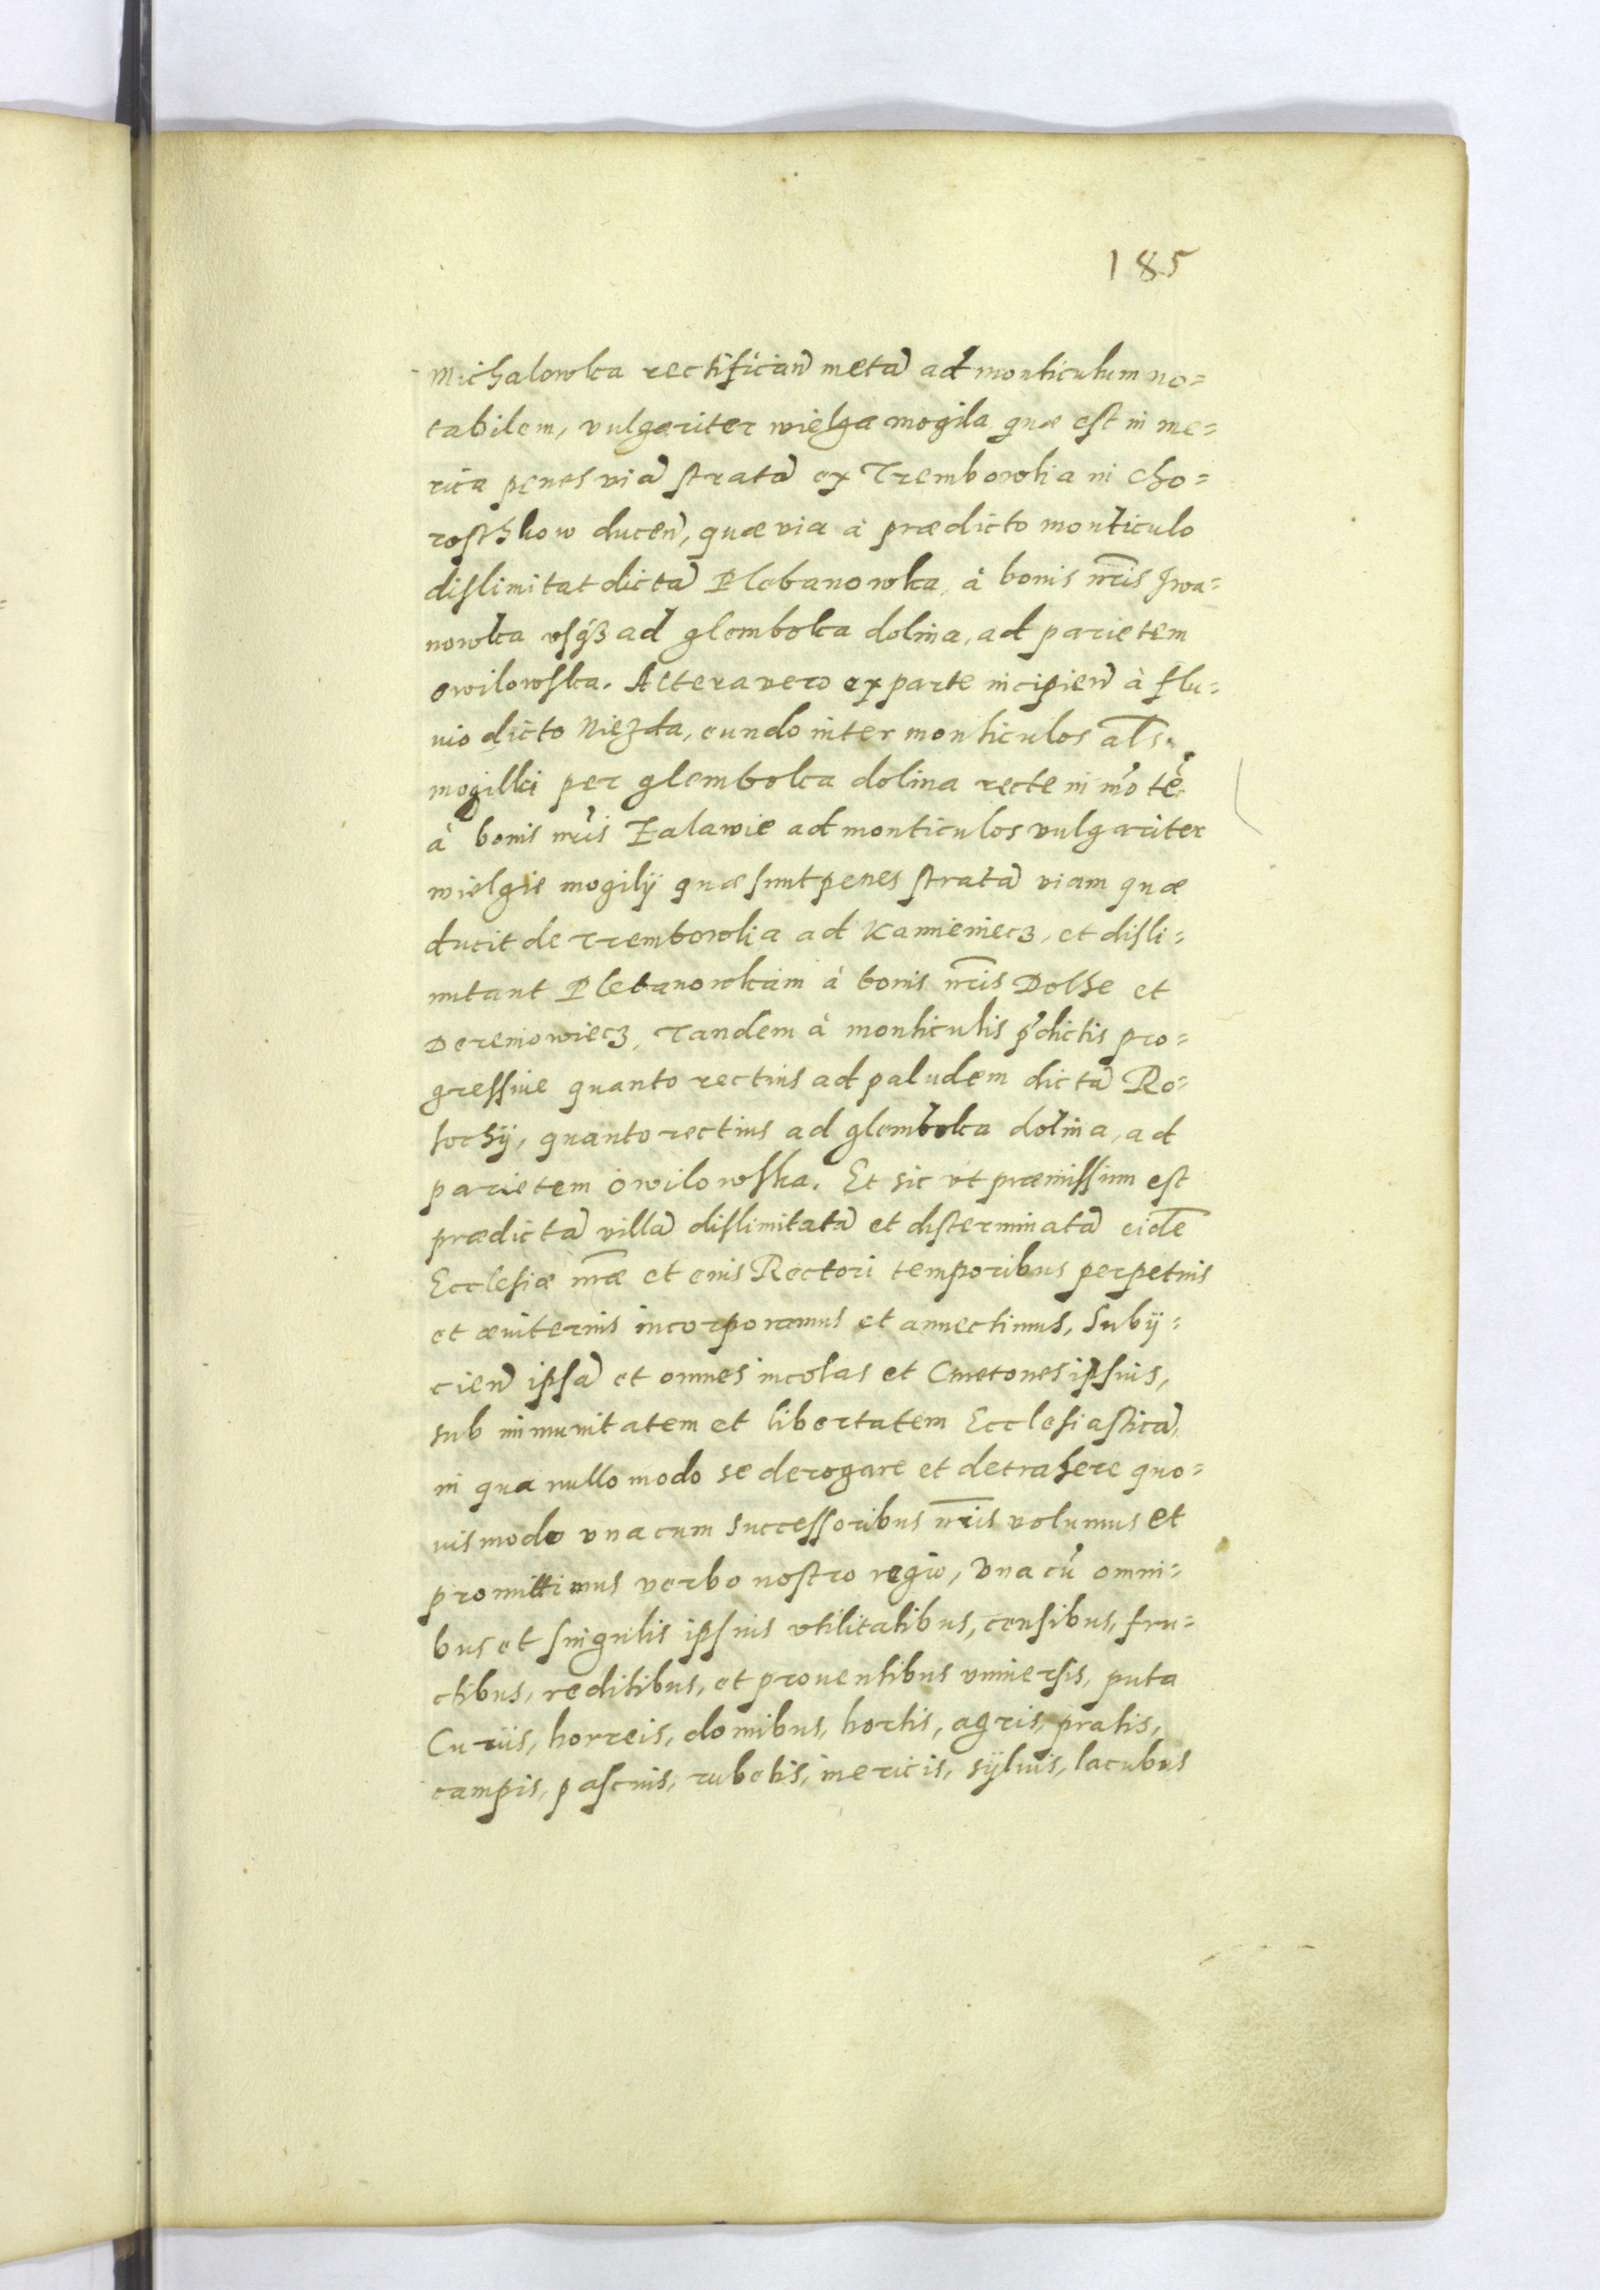 185
Michalowka rectifican̄ metā ad monticulum no=
tabilem, vulgariter wielga mogila quæ est in me=
rica penes viā stratā ex Trembowlia in Cho=
rosthkow ducen̄, quæ via à prædicto monticulo
dislimitat dictā Plebanowka, à bonis nr̄is Iwa=
nowka vsqꝫ ad glemboka dolina, ad parietem
owilowska. Altera vero ex parte incipien̄ à flu=
uio dicto Niezda, eundo inter monticulos al̄s.
mogilki per glemboka dolina recte in
à bonis nr̄is Zalawie ad monticulos vulgariter
wielgie mogilÿ quæ sunt penes stratā viam quæ
ducit de Trembowlia ad Kamieniecz, et disli=
mitant Plebanowkam à bonis nr̄is Dolhe et
Dereniowiecz, Tandem à monticulis p̄dictis pro=
gressiue quanto rectius ad paludem dictā Ro=
sochÿ, quanto rectius ad glemboka dolina, ad
parietem owilowska. Et sic vt præmissum est
prædictā villā dislimitatā et disterminatā eidē
Ecclesiæ nr̄æ et eius Rectori temporibus perpetuis
et æuiternis incorporamus et annectimus, Subij=
cien̄ ipsā et omnes incolas et Cmetones ipsius,
sub immunitatem et libertatem Ecclesiasticā,
in qua nullo modo se derogare et detrahere quo=
uis modo vna cum successoribus nr̄is volumus et
promittimus verbo nostro regio, Vna cū omni=
bus et singulis ipsius vtilitatibus, censibus, fru=
ctibus, reditibus, et prouentibus vniuersis, puta
Curiis, horreis, domibus, hortis, agris, pratis,
campis, pascuis, rubetis, mericis, sÿluis, lacubus